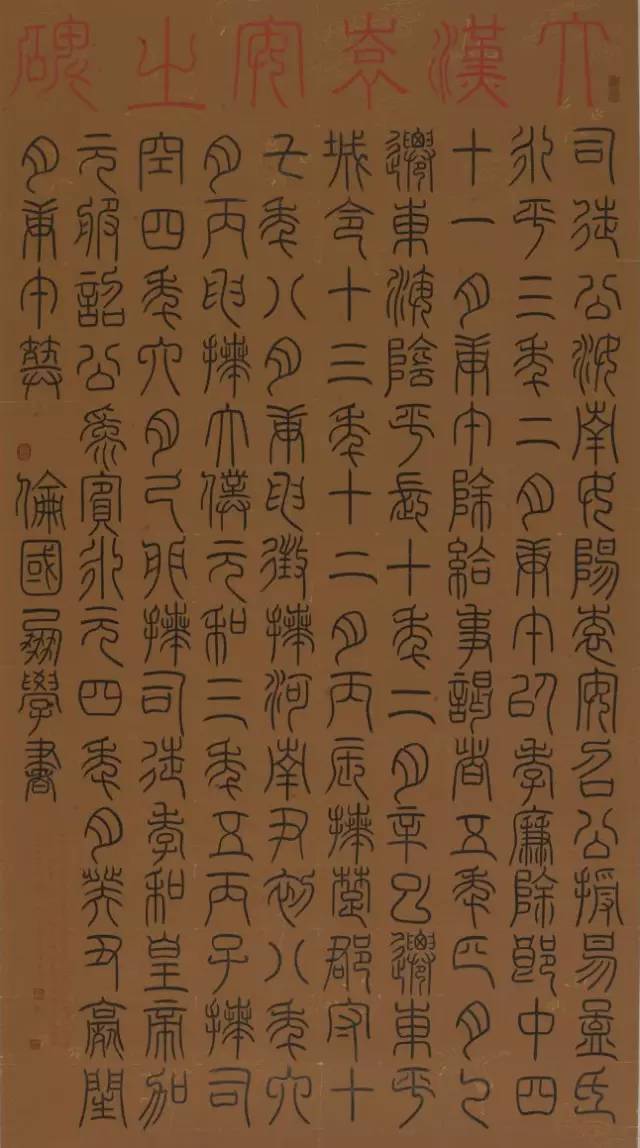 大漢袁安之碑
司徒公汝南女陽袁安召公授易孟氏
永平三年二月庚午以孝廉除郎中四
十一月庚午除給事謁者五年正月乙
遷東海陰平長十年二月辛巳遷東平
城令十三年十二月丙辰拜楚郡守十
七年八月庚申徵拜河南尹初八年六
月丙申拜太僕元和三年五丙子拜司
空四年六月己卯拜司徒孝和皇帝加
元服詔公為賓永元四年月癸丑薨閏
月庚午葬
倫國學書